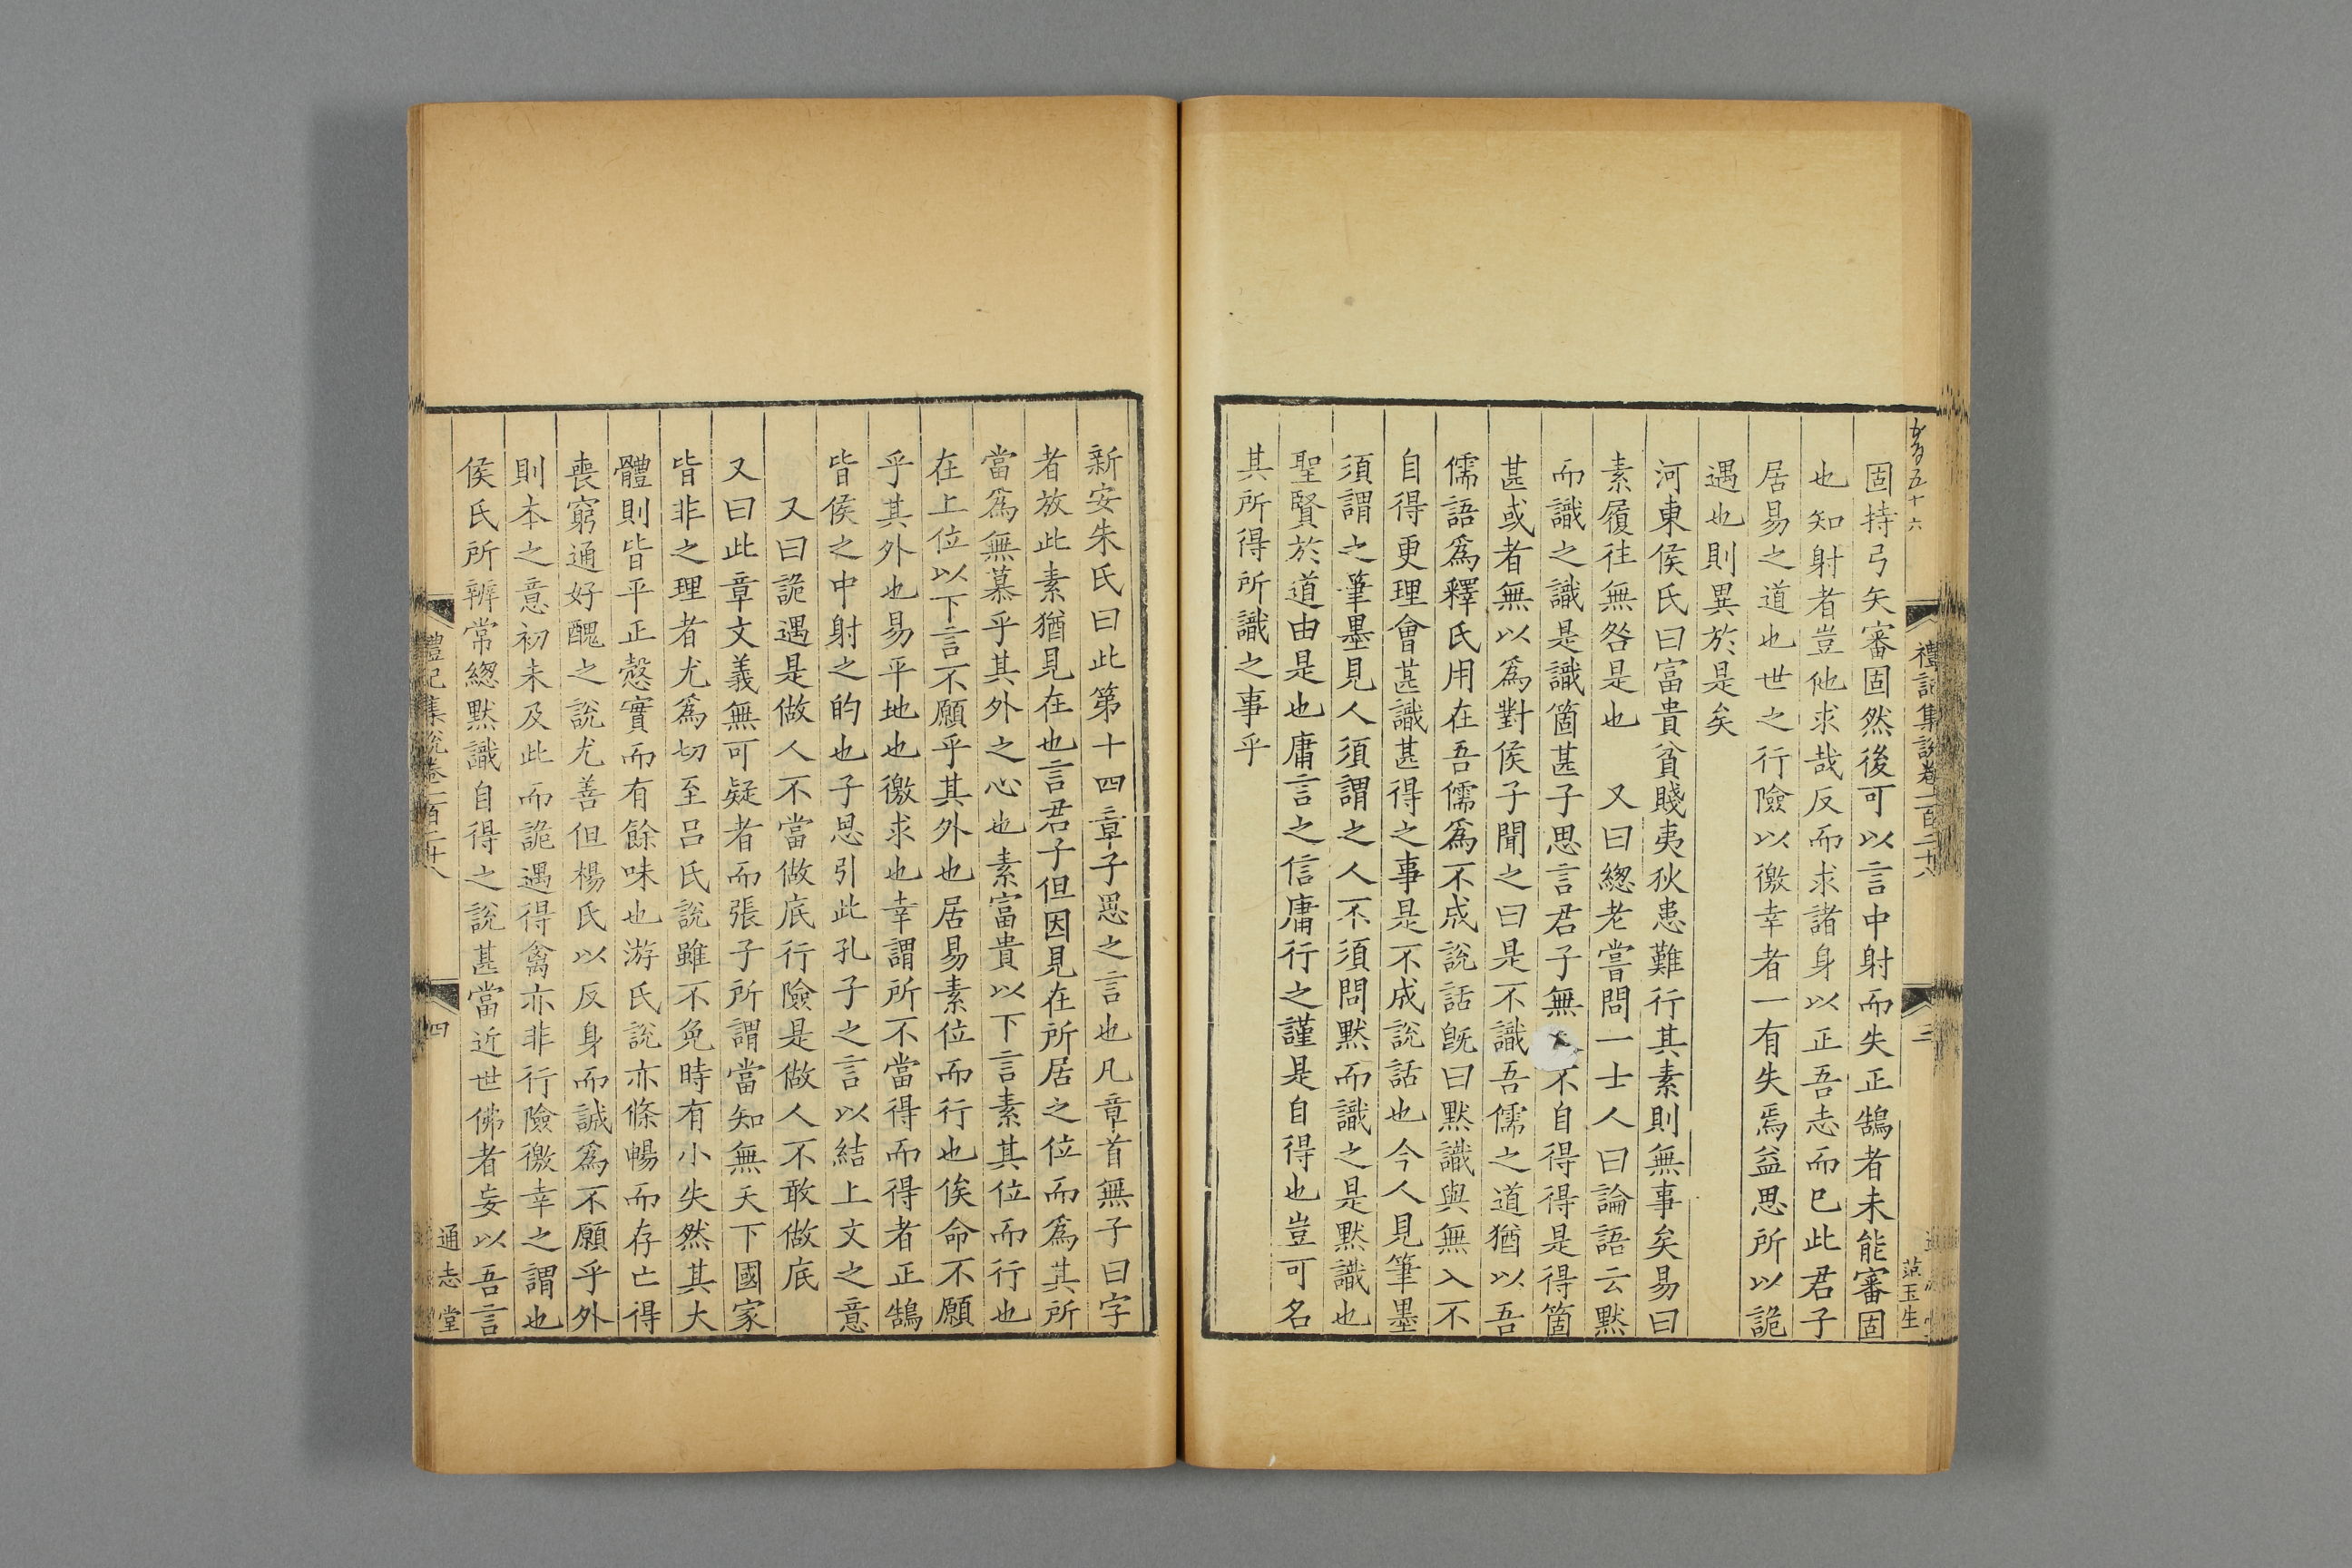 五十六
禮記集說卷一百二十八
三
范玉生
固持弓矢審固然後可以言中射而失正鵠者未能審固
也知射者豈他求哉反而求諸身以正吾志而已此君子
居易之道也世之行險以徼幸者一有失焉益思所以詭
遇也則異於是矣
河東侯氏曰富貴貧賤夷狄患難行其素則無事矣易曰
素履往無咎是也　又曰緫老嘗問一士人曰論語云默
而識之識是識箇甚子思言君子無入不自得得是得箇
甚或者無以爲對侯子聞之曰是不識吾儒之道猶以吾
儒語爲釋氏用在吾儒爲不成說話旣曰默識與無入不
自得更理會甚識甚得之事是不成說話也今人見筆墨
須謂之筆墨見人須謂之人不須問默而識之是默識也
聖賢於道由是也庸言之信庸行之謹是自得也豈可名
其所得所識之事乎
新安朱氏曰此第十四章子思之言也凡章首無子曰字
者放此素猶見在也言君子但因見在所居之位而爲其所
當爲無慕乎其外之心也素富貴以下言素其位而行也
在上位以下言不願乎其外也居易素位而行也俟命不願
乎其外也易平地也徼求也幸謂所不當得而得者正鵠
皆侯之中射之的也子思引此孔子之言以結上文之意
又曰詭遇是做人不當做底行險是做人不敢做底
又曰此章文義無可疑者而張子所謂當知無天下國家
皆非之理者尤爲切至呂氏說雖不免時有小失然其大
體則皆平正慤實而有餘味也游氏說亦條暢而存亡得
喪窮通好醜之說尤善但楊氏以反身而誠爲不願乎外
則本之意初未及此而詭遇得禽亦非行險徼幸之謂也
侯氏所辨常緫默識自得之說甚當近世佛者妄以吾言
禮記集說卷一百二十八
四
通志堂